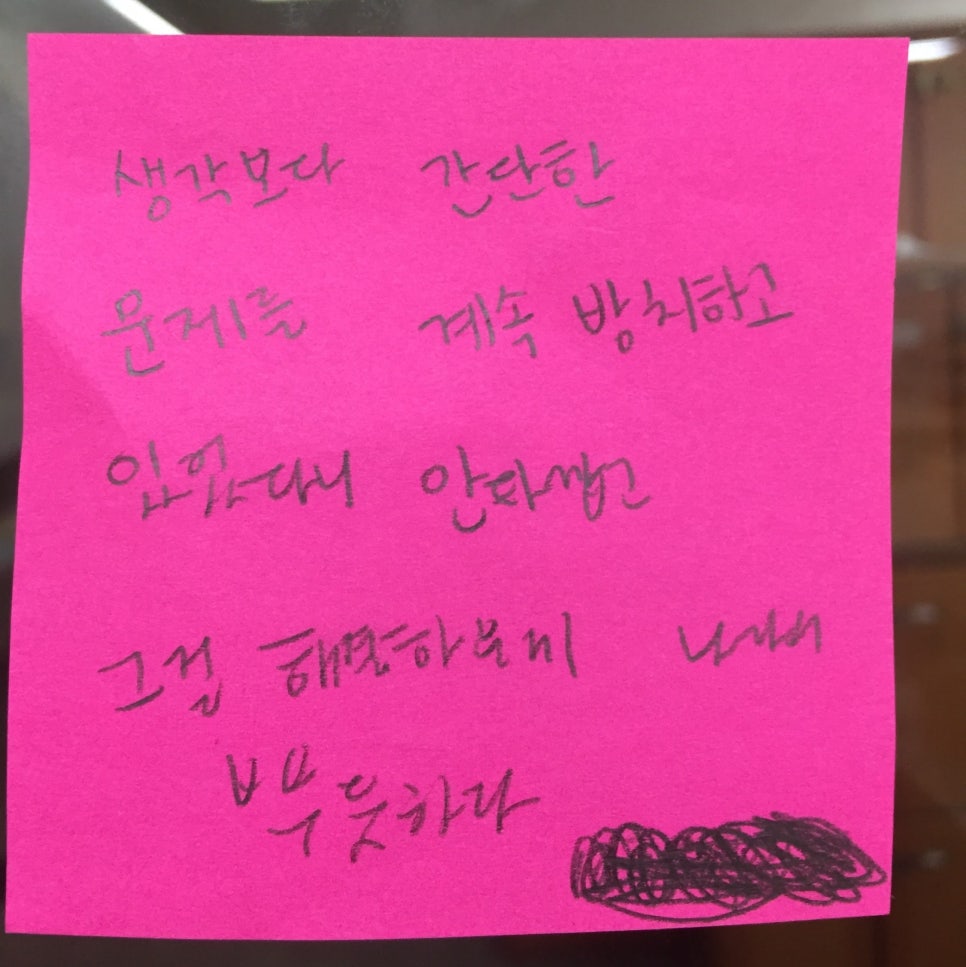 생각보다 간단한
문제를 계속 방치하고
있었다니 안타깝고
그걸 해결하우미 나자신
뿌듯하다